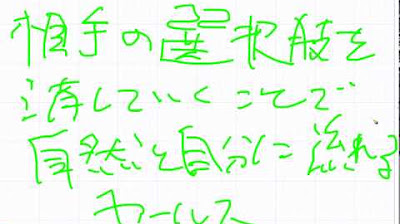 相手の選択肢を
消していくことで
自然と自分に流れる
セールス